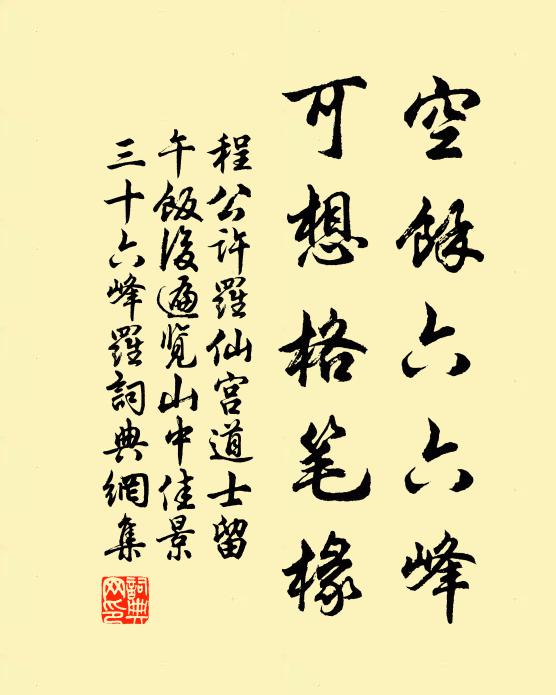 空餘六六峰
可想格笔椽
程公許羅仙宫道士留
午飯後遍覽山中佳景
三十六峰羅詞典網集
詞典網印